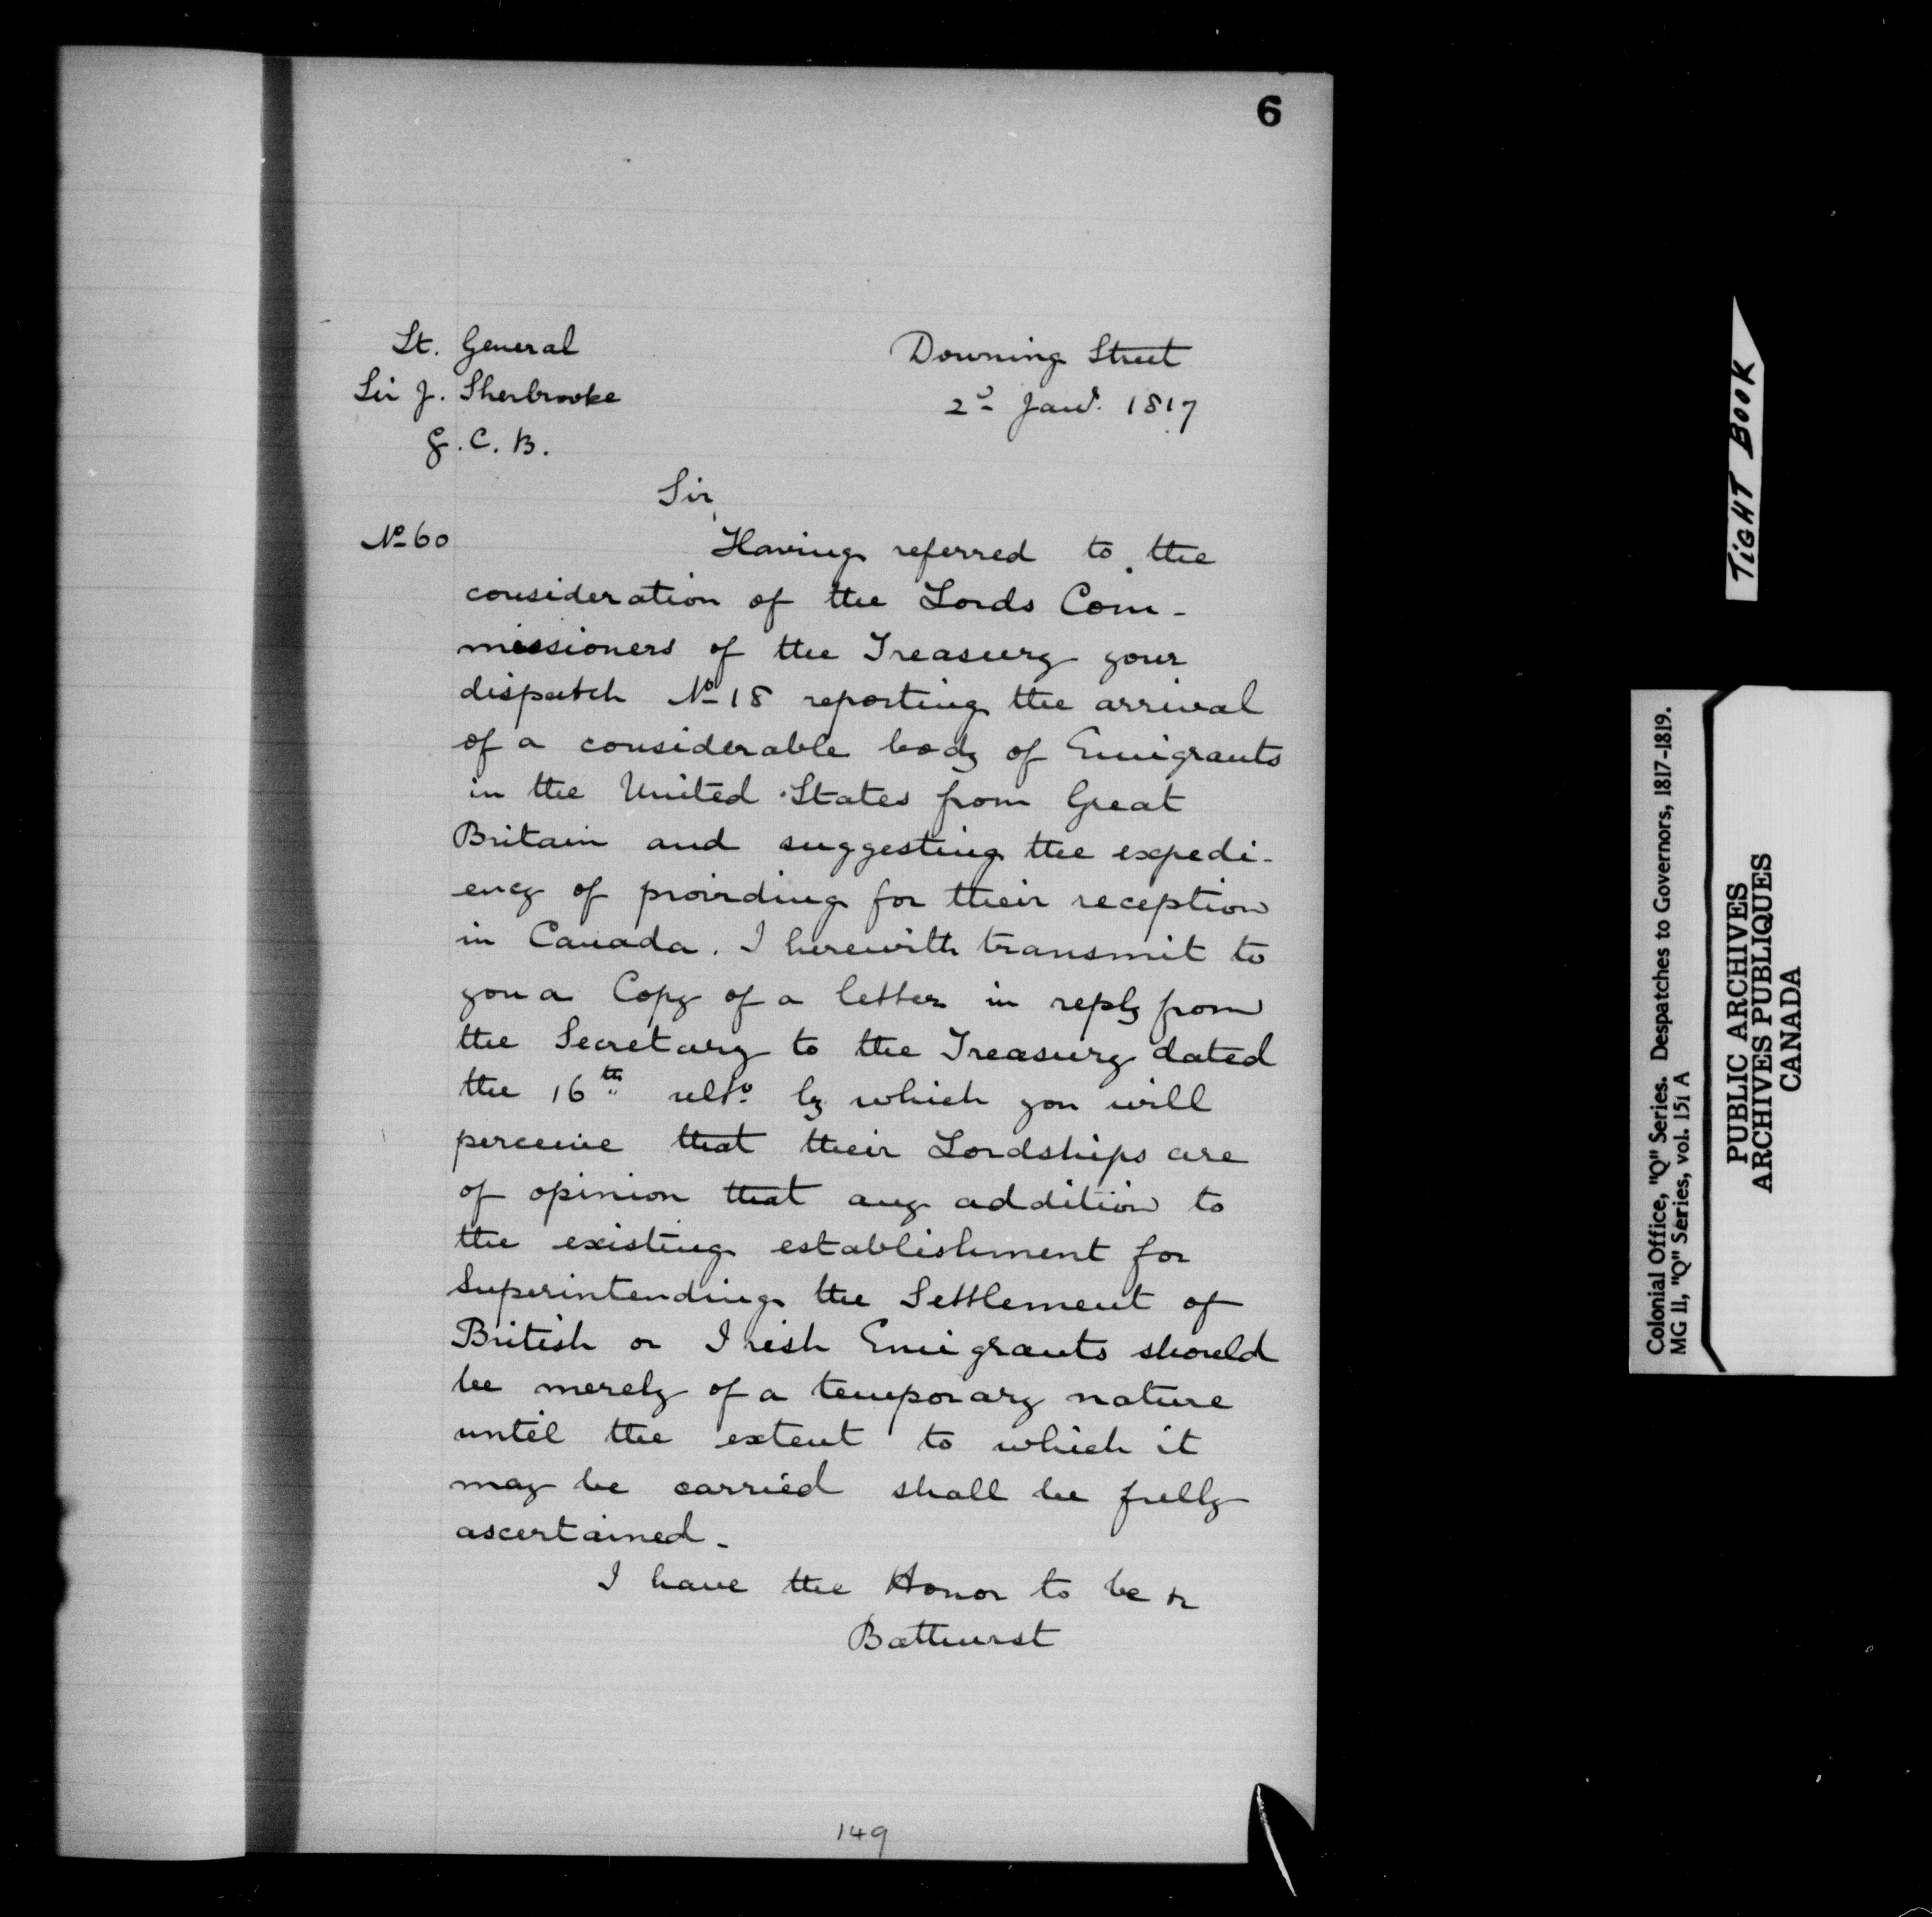 6
Lt. General
Sir J. Sherbrooke
G.C.B.
Downing Street
2d Jany. 1817
Sir,
No 60
Having referred to the
consideration of the Lords Com-
missioners of the Treasury your
dispatch No 18 reporting the arrival
of a considerable body of Emigrants
in the United States from Great
Britain and suggesting the expedi-
ency of providing for their reception
in Canada. I herewith transmit to
you a Copy of a letter in reply from
the Secretary to the Treasury dated
the 16th ulto. by which you will
perceive that their Lordships are
of opinion that any addition to
the existing establishment for
Superintending the Settlement of
British or Irish Emigrants should
be merely of a temporary nature
until the extent to which it
may be carried shall be fully
ascertained.
I have the Honor to be &
Bathurst
149
TiGHT BOOK
Colonial Office, "Q" Series. Despatches to Governors, 1817-1819.
MG 11, "Q" Series, vol. 151 A
PUBLIC ARCHIVES
ARCHIVES PUBLIQUES
CANADA